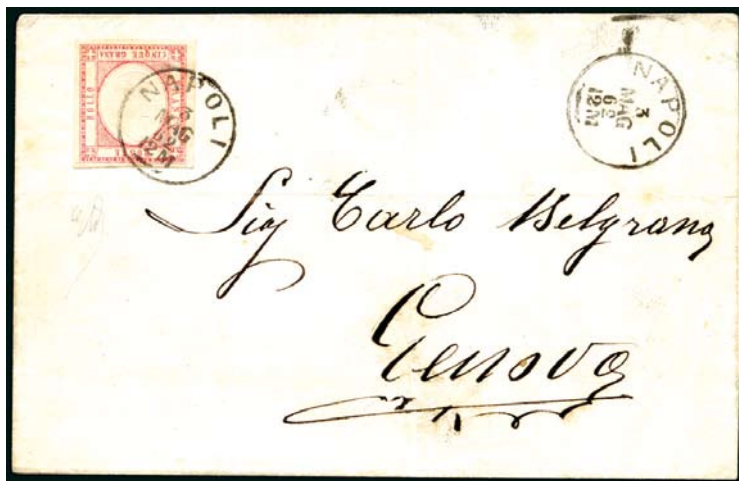 CINQUE GRANA
BOLLO
NAPOLI
MAG
62
12M
NAPOLI
3
MAG
62
12M
Sig Carlo Belgrano
Genova